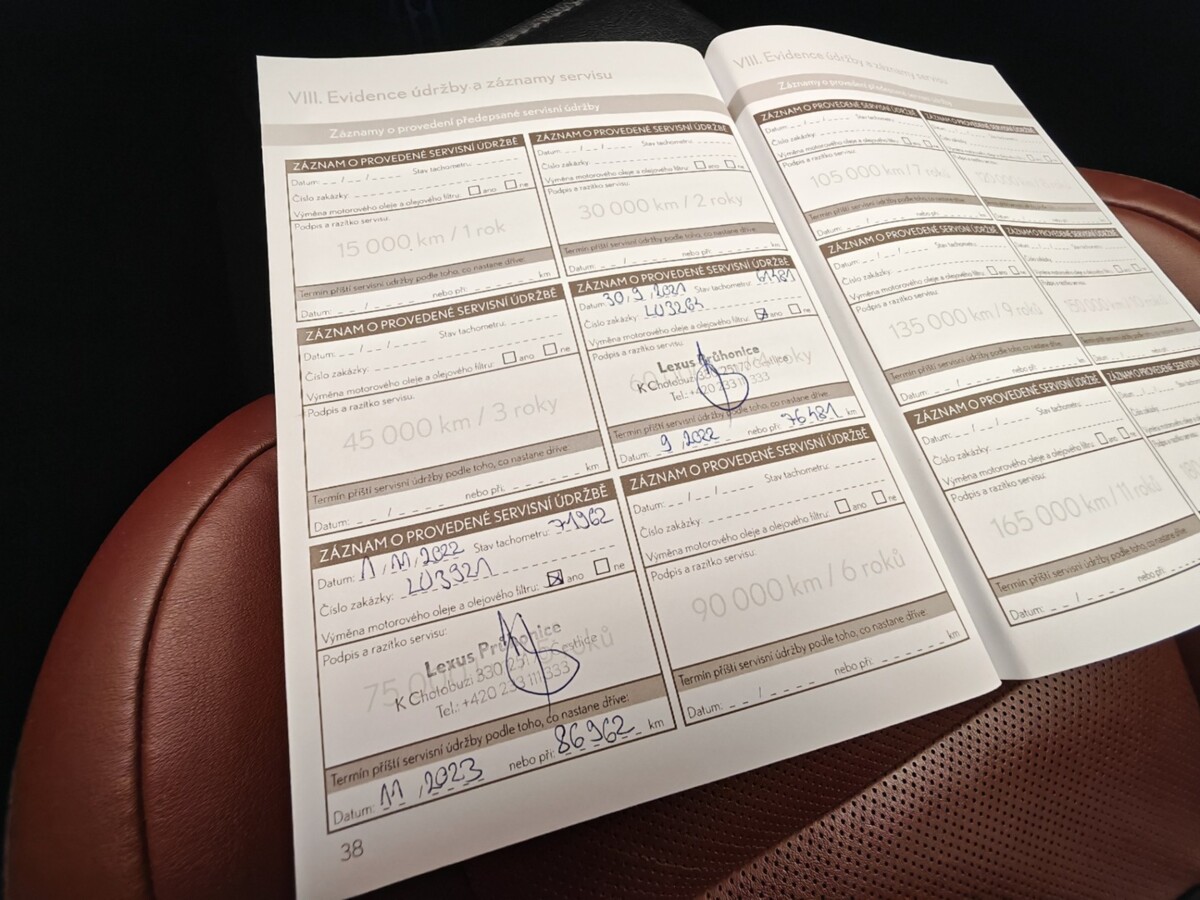 VIII. Evidence údržby a záznamy servisu
Záznamy o provedení předepsané servisní údržby
ZÁZNAM O PROVEDENÉ SERVISNÍ ÚDRŽBĚ
Datum: _ _ / _ _ / _ _ _ _ Stav tachometru:
Číslo zakázky:
Výměna motorového oleje a olejového filtru: ano ne
Podpis a razítko servisu:
15 000 km / 1 rok
Termín příští servisní údržby podle toho, co nastane dříve:
Datum: _ _ / _ _ _ _ nebo při: km
ZÁZNAM O PROVEDENÉ SERVISNÍ ÚDRŽBĚ
Datum: _ _ / _ _ / _ _ _ _ Stav tachometru:
Číslo zakázky:
Výměna motorového oleje a olejového filtru: ano ne
Podpis a razítko servisu:
30 000 km / 2 roky
Termín příští servisní údržby podle toho, co nastane dříve:
Datum: _ _ / _ _ _ _ nebo při: km
ZÁZNAM O PROVEDENÉ SERVISNÍ ÚDRŽBĚ
Datum: _ _ / _ _ / _ _ _ _ Stav tachometru:
Číslo zakázky:
Výměna motorového oleje a olejového filtru: ano ne
Podpis a razítko servisu:
45 000 km / 3 roky
Termín příští servisní údržby podle toho, co nastane dříve:
Datum: _ _ / _ _ _ _ nebo při: km
ZÁZNAM O PROVEDENÉ SERVISNÍ ÚDRŽBĚ
Datum: 30, 9, 2021 Stav tachometru: 61481
Číslo zakázky: LU3264
Výměna motorového oleje a olejového filtru: ano ne
Podpis a razítko servisu:
Lexus Průhonice
K Chotobuzi 330 251 71 Čestlice
Tel.: +420 233 111 333
Termín příští servisní údržby podle toho, co nastane dříve:
Datum: 9, 2022 nebo při: 76481 km
ZÁZNAM O PROVEDENÉ SERVISNÍ ÚDRŽBĚ
Datum: 1, 11, 2022 Stav tachometru: 71962
Číslo zakázky: LU3921
Výměna motorového oleje a olejového filtru: ano ne
Podpis a razítko servisu:
Lexus Průhonice
K Chotobuzi 330 251 71 Čestlice
Tel.: +420 233 111 333
Termín příští servisní údržby podle toho, co nastane dříve:
Datum: 11, 2023 nebo při: 86962 km
ZÁZNAM O PROVEDENÉ SERVISNÍ ÚDRŽBĚ
Datum: _ _ / _ _ / _ _ _ _ Stav tachometru:
Číslo zakázky:
Výměna motorového oleje a olejového filtru: ano ne
Podpis a razítko servisu:
90 000 km / 6 roků
Termín příští servisní údržby podle toho, co nastane dříve:
Datum: _ _ / _ _ _ _ nebo při: km
38
VIII. Evidence údržby a záznamy servisu
Záznamy o provedení předepsané servisní údržby
ZÁZNAM O PROVEDENÉ SERVISNÍ ÚDRŽBĚ
Datum: _ _ / _ _ / _ _ _ _ Stav tachometru:
Číslo zakázky:
Výměna motorového oleje a olejového filtru:
Podpis a razítko servisu:
105 000 km / 7 roků
Termín příští servisní údržby podle toho, co nastane dříve:
Datum: nebo při:
ZÁZNAM O PROVEDENÉ SERVISNÍ ÚDRŽBĚ
ZÁZNAM O PROVEDENÉ SERVISNÍ ÚDRŽBĚ
Datum: _ _ / _ _ / _ _ _ _ Stav tachometru:
Číslo zakázky:
Výměna motorového oleje a olejového filtru: ano
Podpis a razítko servisu:
135 000 km / 9 roků
Termín příští servisní údržby podle toho, co nastane dříve:
Datum: nebo při:
ZÁZNAM O PROVEDENÉ SERVISNÍ ÚDRŽBĚ
ZÁZNAM O PROVEDENÉ SERVISNÍ ÚDRŽBĚ
Datum: _ _ / _ _ / _ _ _ _ Stav tachometru:
Číslo zakázky:
Výměna motorového oleje a olejového filtru: ano
Podpis a razítko servisu:
165 000 km / 11 roků
Termín příští servisní údržby podle toho, co nastane dříve:
Datum: _ _ / _ _ _ _ nebo při:
ZÁZNAM O PROVEDENÉ SERVISNÍ